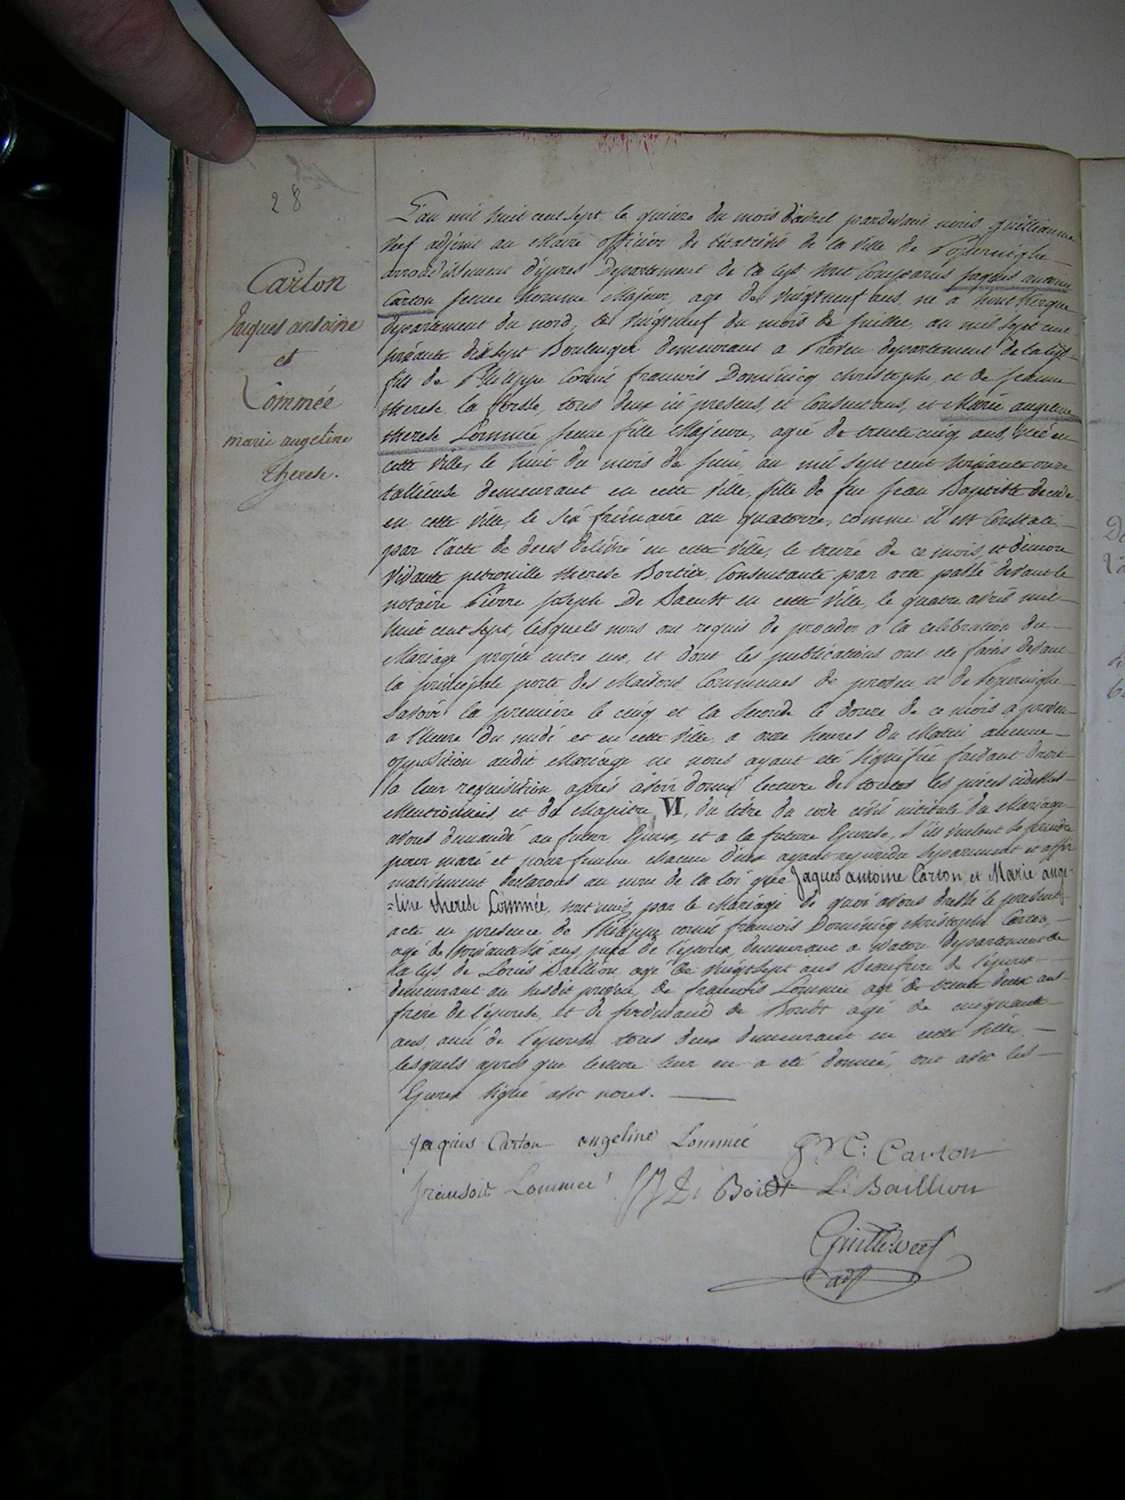 28
Carton
Jaques antoine
et
Lommée
marie angeline
therese.
L'an mil huit cent sept le quinze du mois d'avril pardevant nous Guillaume
Werf adjoint au Maire officier de l'état civil de la ville de Poperinghe
arrondissement d'ypres Departement de la Lys sont Comparus Jaques antoine
Carton jeune homme Majeur, agé de vingtneuf ans, né a
departement du nord, le vingtneuf du mois de juillet, an mil sept cent
soixante dix sept Boulenger demeurant a Proven departement de la Lys
fils de Philippe Cornil francois Dominicq christophe, et de Jeanne
therese la tous deux ici presens, et Consentans, et Marie angeline
therese Lommée jeune fille Majeure, agée de trente cinq ans, née en
cette ville, le huit du mois de juin, an mil sept cent soixante onze
tallieuse demeurant en cette ville, fille de feu jean Baptiste decedé
en cette ville, le six frimaire an quatorze, comme il est Constaté
par l'acte de deces delivré en cette ville, le treize de ce mois, et d'encore
vivante petronille therese Bortier, Consentante par acte passé devant le
notaire Pierre Joseph De Baenst en cette ville, le quatre avril mil
huit cent sept, lesquels nous ont requis de proceder a la celebration du
Mariage projeté entre eux, et dont les publications ont été faites devant
la principale porte des Maisons Communes de proven et de Poperinghe
Savoir la premiere le cinq et la seconde le douze de ce mois a proven
a l'heure du midi et en cette ville a onze heures du Matin aucune
opposition audit Mariage ne nous ayant été signifiée faisant droit
a leur requisition après avoir donné lecture de toutes les pieces cidessus
Mentionnées et du chapitre VI, du titre du code civil intitulé du Mariage
avons demandé au futur Epoux, et a la future Epouse, s'ils veulent se prendre
pour mari et pour femme chacun d'eux ayant repondu separement et affir
mativement declarons au nom de la loi que Jaques antoine Carton, et Marie ange-
=line therese Lommée, sont unis par le Mariage de quoi avons dressé le present
acte en presence de Philippe cornil francois Dominicq christophe Carton,
agé de soixante six ans pere de l'epoux demeurant a Watou departement de
la Lys, de Louis Baillion agé de vingtsept ans Beaufrere de l'epoux
demeurant au susdit proven, de francois Lommée agé de trente deux ans
frere de l'epouse, et de ferdinand de Boidt agé de cinquante
ans, ami de l'epouse tous deux demeurant en cette ville,
lesquels après que lecture leur en a été donnée, ont avec les
Epoux signé avec nous.
Jaques Carton angeline Lommée P C: Carton
fransois Lommee De Boidt L: Baillion
Guill: Werf
adj